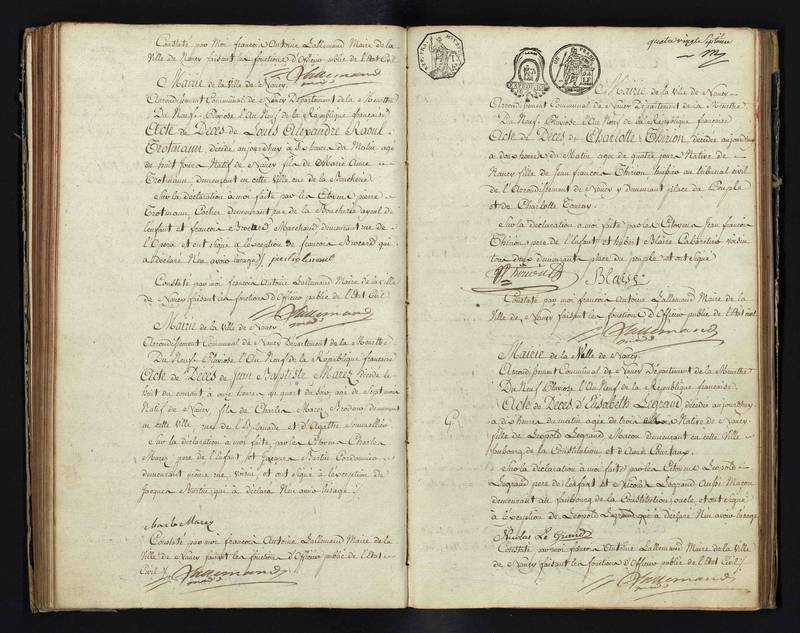 Constaté par Moi françois Antoine Lallemand Maire de la
Ville de Nancy faisant les fonction d'Officier publie de l'Etat Civil
Lallemand
Mairie de la Ville de Nancy
Arrondissement Communal de Nancy Département de la Meurthe
Du Neuf Pluviose l'An Neuf de la République françaisse
Acte de Décès de Louis Alexandre Raoul
Trotmann décédé aujourdhuy à six heures du Matin agé
de huit jours Natif de Nancy fils de Marie Anne
Trotmann demeurant en cette Ville rue de la Boucherie
Sur la déclaration à moi faite par les Citoyens pierre
Trotmann, Cocher demeurant rue de la Boucherie ayeul de
l'enfant et françois Marchand demeurant rue de
l'Opera et ont signé a l'exception de françois qui
a déclaré N'en avoir l'usage
Constaté par moi françois Antoine Lallemand Maire de la Ville
de Nancy faisant les fonction d'Officier publie de l'Etat Civil
Lallemand
Mairie de la Ville de Nancy
Arrondissement Communal de Nancy Département de la Meurthe
Du Neuf Pluviose l'An Neuf de la République française
Acte de Décès de Jean Baptiste Marez décédé le
huit du courant à onze heures du soir, agé de Sept mois
Natif de Nancy, fils de Charles Marez Brodeur demeurant
en cette Ville rue de l'Esplanade et d'Agathe
Sur la déclaration à moi faite, par les Citoyens Charles
Marez pere de l'Enfant et Jacque Cordonnier
demeurant même rue, voisin, et ont signé à l'exception de
Jacque qui a déclaré N'en avoir l'usage
Marez
Constaté par moi françois Antoine Lallemand Maire de la
Ville de Nancy faisant les fonction d'Officier publie de l'Etat
Civil
Lallemand
quatre vingt Septieme
Mairie de la Ville de Nancy
Arrondissement Communal de Nancy Département de la Meurthe
Du Neuf Pluviose l'An Neuf de la République française
Acte de Décès de Charlotte Thirion, décédée aujourdhuy
à deux heures du Matin agée de quatre jours Native de
Nancy fille de Jean françois Thirion huissier au tribunal civil
de l'Arrondissement de Nancy y demeurant place du Peuple
et de Charlotte
Sur la déclaration à moi faite par les Citoyens Jean françois
Thirion, pere de l'Enfant et hubert Blaise Cabaretier voisin
tous deux demeurant place du peuple et ont signé
Thirion Blaise
Constaté par moi françois Antoine Lallemand Maire de la
Ville de Nancy faisant les fonction d'Officier publie de l'Etat civil
Lallemand
Mairie de la Ville de Nancy
Arrondissement Communal de Nancy Département de la Meurthe
Du Neuf Pluviose l'An Neuf de la République française
Acte de Décès d'Elisabeth Legrand, décédée aujourdhuy
à dix heures du matin agée de trois Native de Nancy
fille de Léopold Legrand Macon demeurant en cette Ville
faubourg de la Constitution et d'Anne
Sur la déclaration à moi faite par les Citoyens Léopold
Legrand pere de l'Enfant et Nicolas Legrand aussi Macon
demeurant au faubourg de la Constitution, oncle, et ont signé
à l'exception de Léopold Legrand qui a déclaré N'en avoir l'usage
Nicolas Le Grand
Constaté par moi françois Antoine Lallemand Maire de la Ville
de Nancy faisant les fonction d'Officier publie de l'Etat Civil
Lallemand